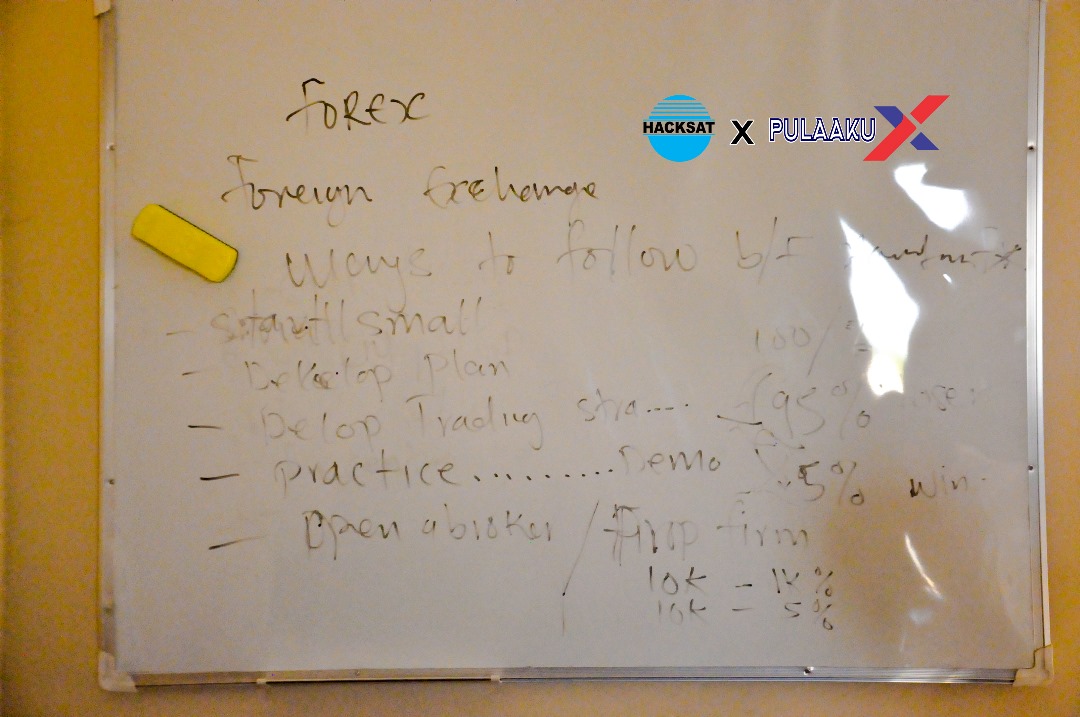 FOREX
HACKSAT X PULAAKU X
Foreign Exchange
Ways to follow b/f
- Start small
100/
- Develop plan
- Delop Trading stra....
95%
- practice.........Demo
5% win.
- Open a broker / Prop firm
10K - 1K %
10K - 5%